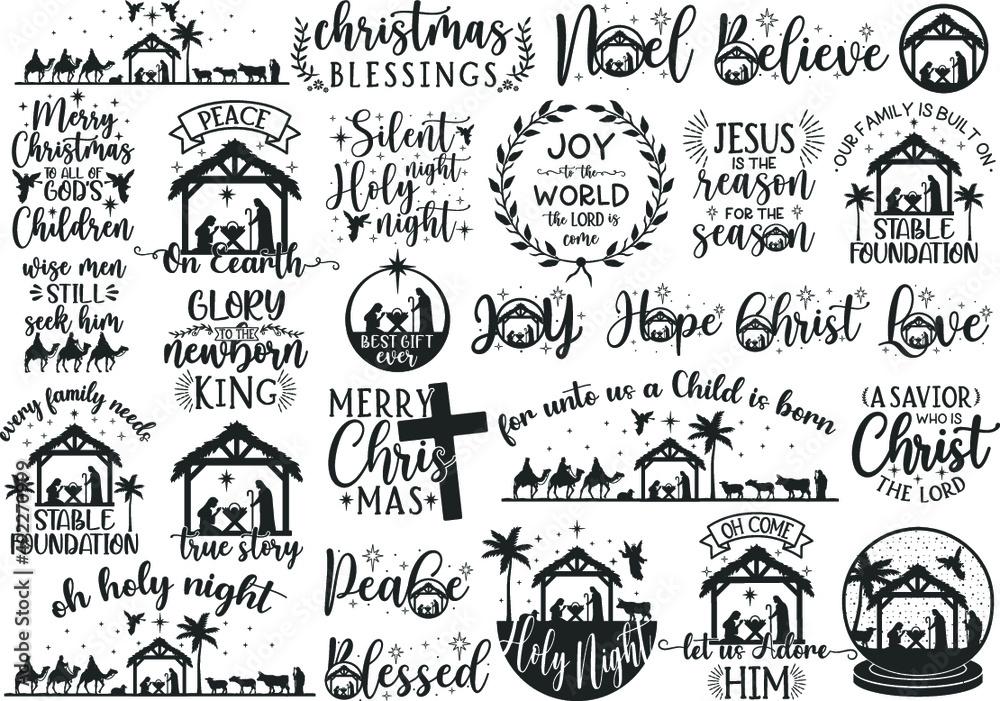 christmas
BLESSINGS
Noel
Believe
Merry
Christmas
TO ALL OF
GOD'S
Children
PEACE
On Eearth
Silent
night
Holy
night
JOY
to the
WORLD
the LORD is
come
JESUS
IS THE
reason
FOR THE
season
OUR FAMILY IS BUILT ON
STABLE
FOUNDATION
wise men
STILL
seek him
GLORY
TO THE
newborn
KING
BEST GIFT
ever
Joy
Hope
Christ
Love
every family needs
STABLE
FOUNDATION
true story
MERRY
Chris
MAS
for unto us a Child is born
A SAVIOR
WHO IS
Christ
THE LORD
oh holy night
Peace
Blessed
Holy Night
OH COME
let us Adore
HIM
Adobe Stock | #622270999